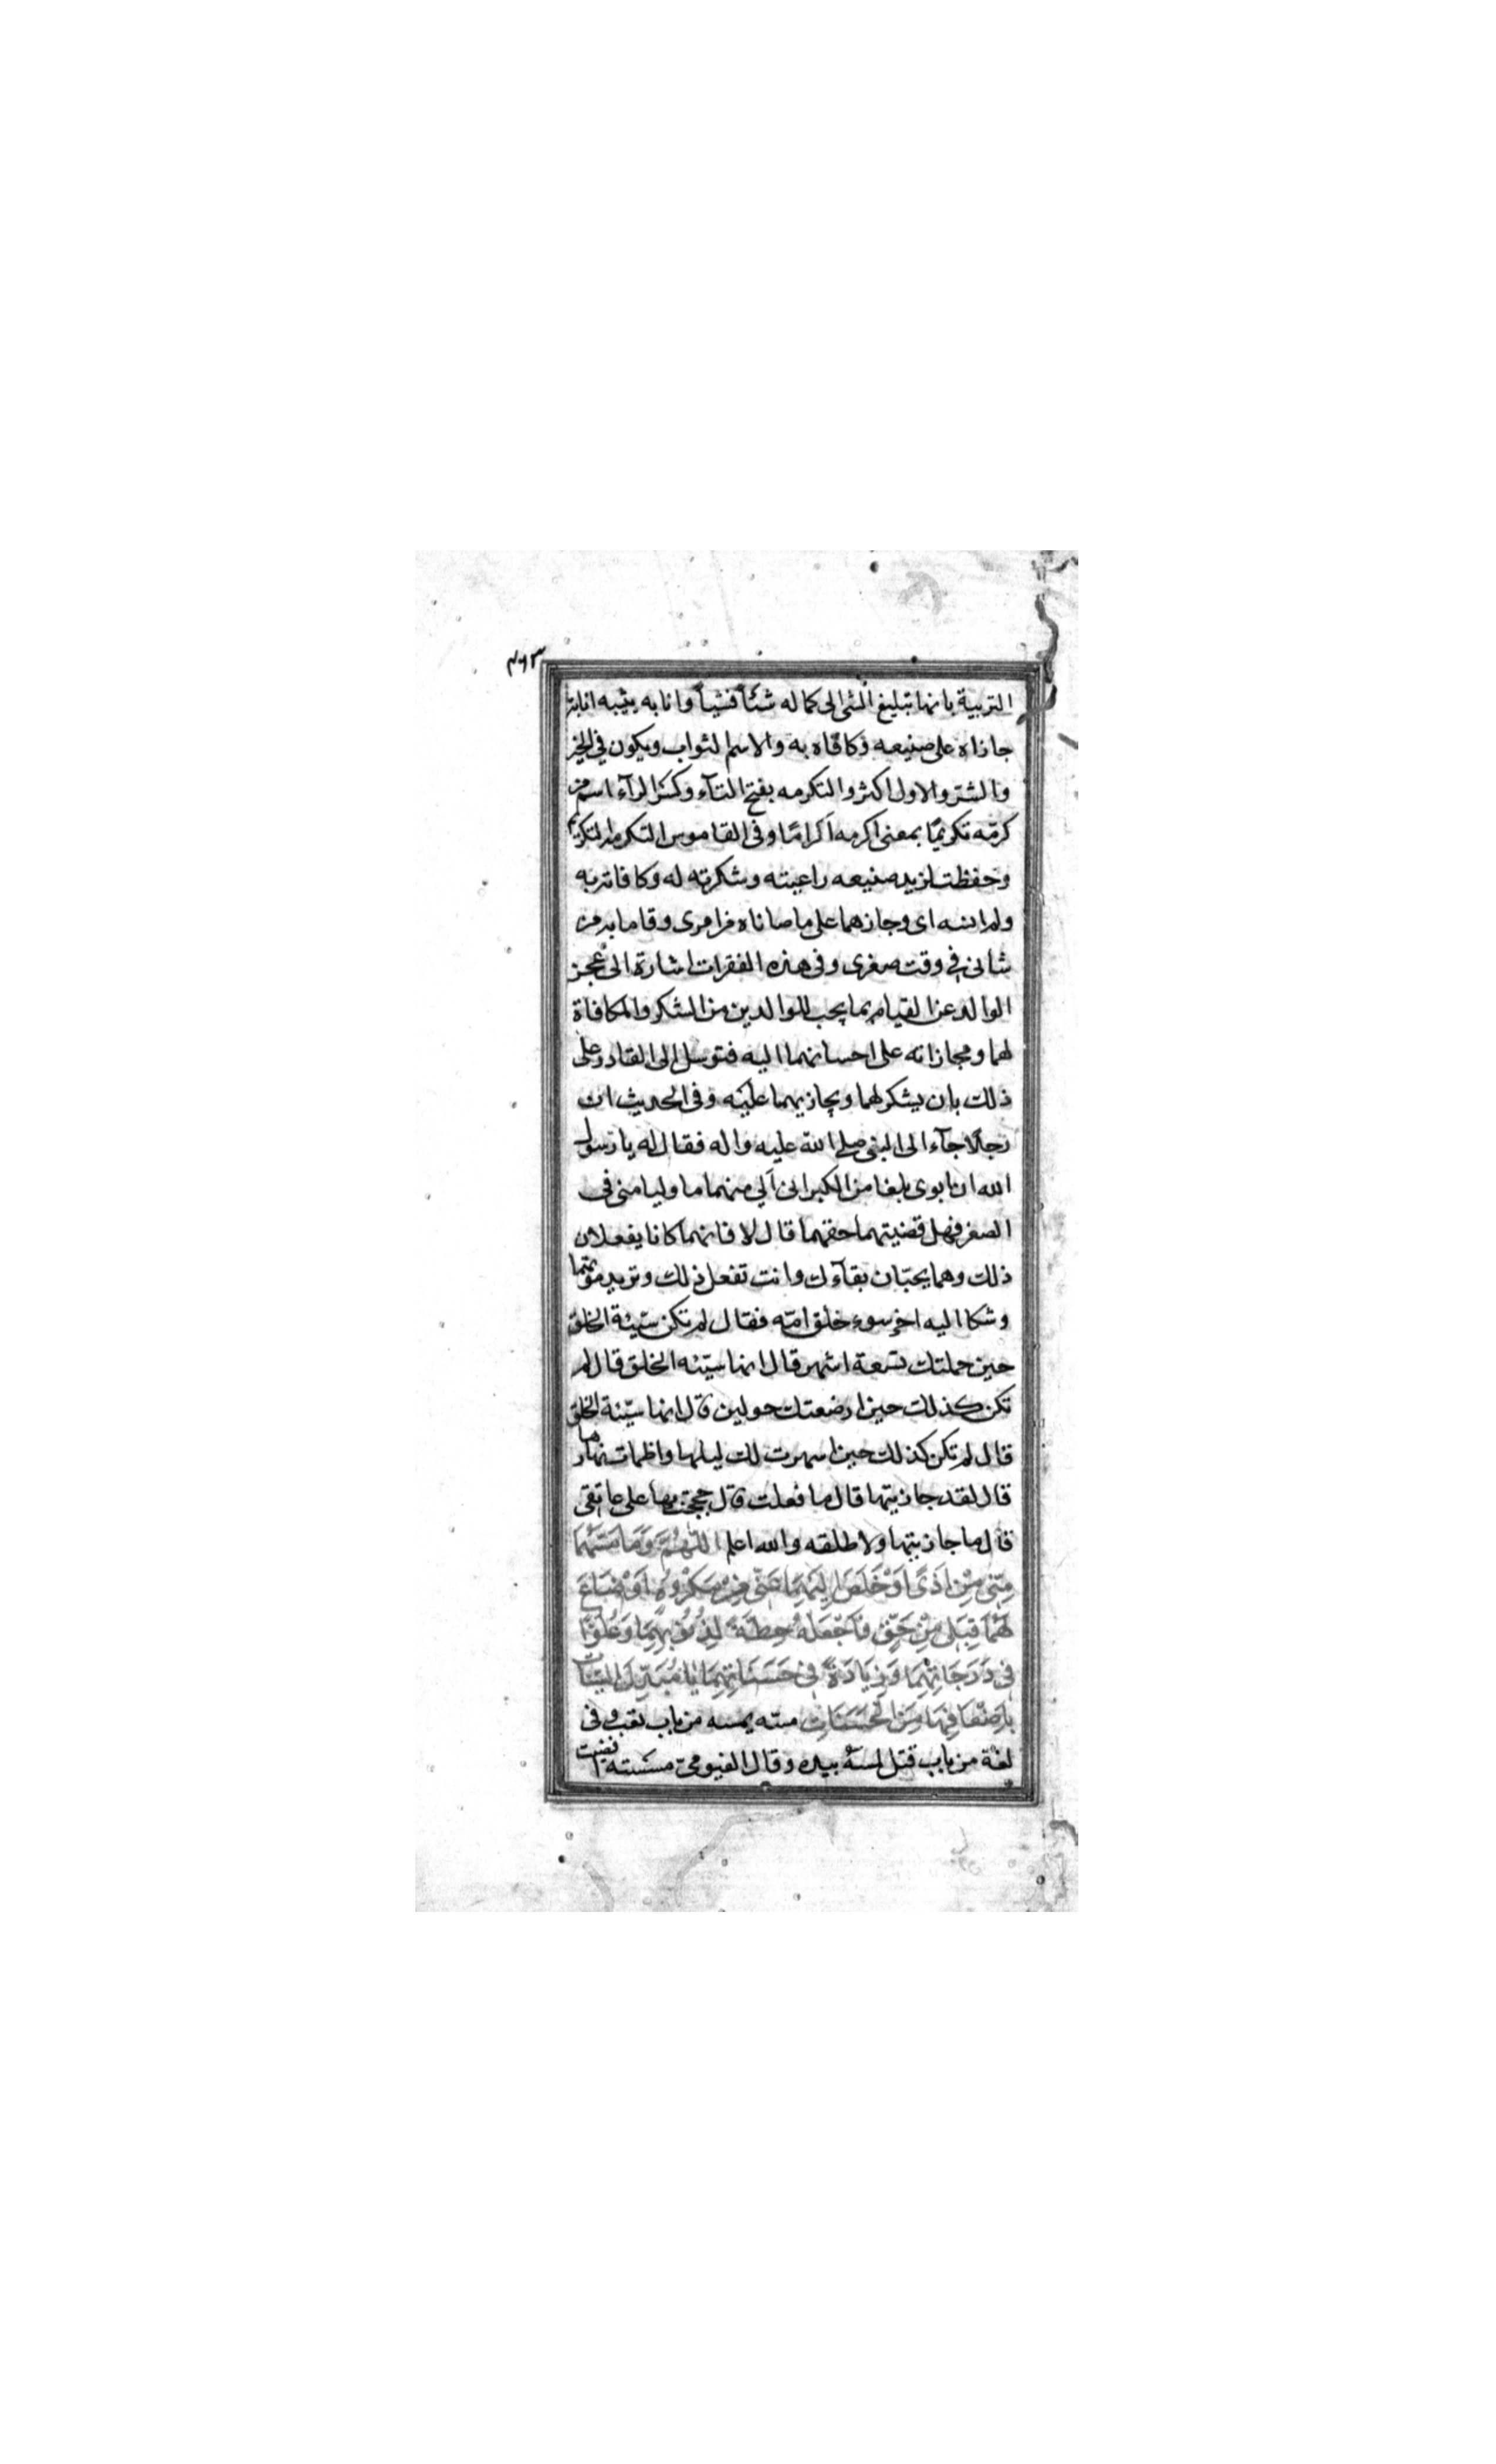 ٤٦٣
التربية بانها تبليغ الشئ الى كماله شئاً فشيأً واثابه يثيبه اثابة
جازاه على صنيعه وكافاه به والاسم الثواب ويكون فى الخير
والشر والاول اكثر والتكرمه بفتح التآء وكسر الرآء اسم من
كرّمه تكريمًا بمعنى اكرمه اكرامًا وفى القاموس التكرمة التكريم
وحفظت لزيد صنيعه راعيته وشكرته له وكافاته به
ولم انسه اى وجازهما على ما صاناه من امرى وقاما به من
شانى فى وقت صغرى وفى هذه الفقرات اشارة الى عجز
الوالد عن القيام بما يجب للوالدين من الشكر والمكافاة
لهما ومجازاته على احسانهما اليه فتوسل الى القادر على
ذلك بان يشكر لهما ويجازيهما عليه وفى الحديث ان
رجلًا جآء الى النبى صلى الله عليه واله فقال له يا رسول
الله ان ابوى بلغا من الكبر انى الي منهما ما وليا منى فى
الصغر فهل قضيتهما حقهما قال لا فانهما كانا يفعلان
ذلك وهما يحبّان بقآءك وانت تفعل ذلك وتريد موتهما
وشكا اليه اخر سوء خلق امّه فقال لم تكن سيئة الخلق
حين حملتك تسعة اشهر قال انها سيّئه الخلق قال لم
تكن كذلك حين ارضعتك حولين قال انها سيّئة الخلق
قال لم تكن كذلك حين اسهرت لك ليلها واظمات نهارها
قال لقد جازيتها قال ما فعلت قال حججت بها على عاتقى
قال ما جازيتها ولا طلقه والله اعلم اللّٰهُمَّ وَمَا مَسَّهُمَا
مِنّى مِنْ اَذًى اَوْ خَلَصَ اِلَيْهِمَا عَنّى مِنْ مَكْرُوهٍ اَوْ ضَاعَ
لَهُمَا قِبَلى مِنْ حَقٍّ فَاجْعَلْهُ حِطَّةً لِذُنُوبِهِمَا وَعُلُوًّا
فِى دَرَجَاتِهِمَا وَزِيَادَةً فِى حَسَنَاتِهِمَا يَا مُبَدِّلَ السَّيِّئَاتِ
بِاَضْعَافِهَا مِنَ الْحَسَنَاتِ مسّه يمسه من باب تعب وفى
لغة من باب قتل لمسه بيده وقال الفيومىّ مسسته افضيت